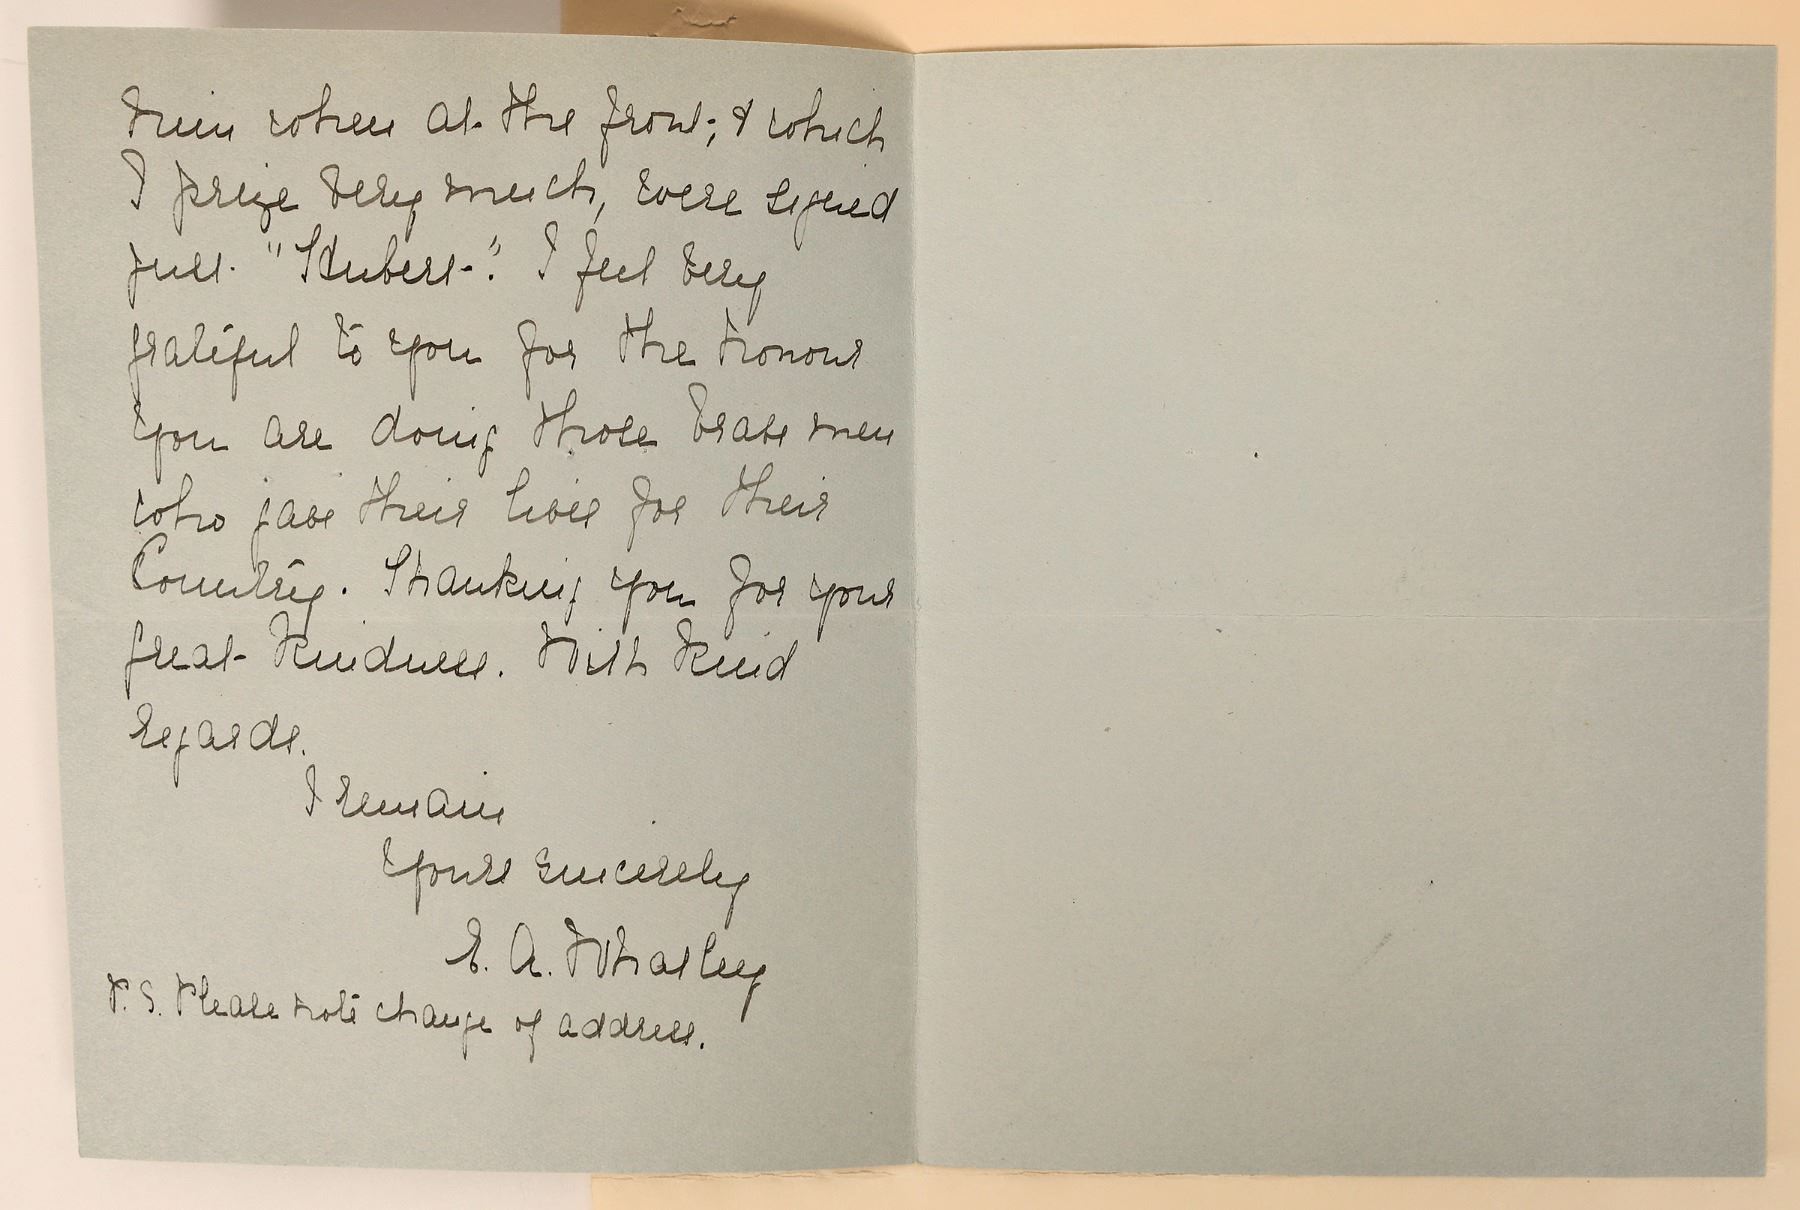 him when at the front; & which
I prize very much, were signed
just "Hubert". I feel very
grateful to you for the honour
you are doing those brave men
who gave their lives for their
Country. Thanking you for your
great kindness. With kind
regards.
I remain
Yours sincerely
E. A. Wharley
P. S. Please note change of address.